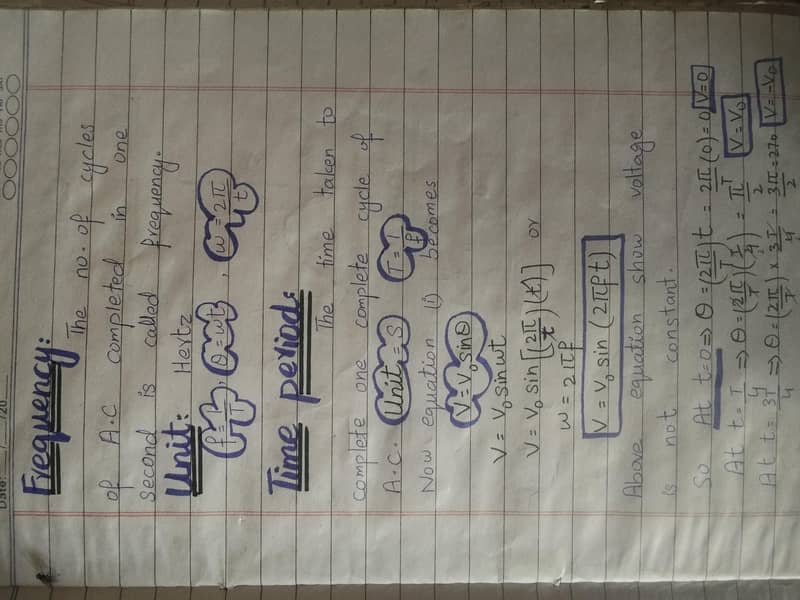 Date: __/__/20__
Frequency:
The no. of cycles
of A.C completed in one
second is called frequency.
Unit: Hertz
f = 1/T , θ = ωt , ω = 2π/t
Time period:
The time taken to
complete one complete cycle of
A.C. Unit = S T = 1/f
Now equation (i) becomes
V = V₀ Sinθ
V = V₀ sin ωt
V = V₀ sin [(2π/t)(t)] or
ω = 2πf
V = V₀ sin (2πft)
Above equation show voltage
is not constant.
So At t=0 ⇒ θ = (2π/T)t = 2π/T (0) = 0, V=0
At t = T/4 ⇒ θ = (2π/T)(T/4) = π/2 V = V₀
At t = 3T/4 ⇒ θ = (2π/T) × 3T/4 = 3π/2 = 270 V = -V₀